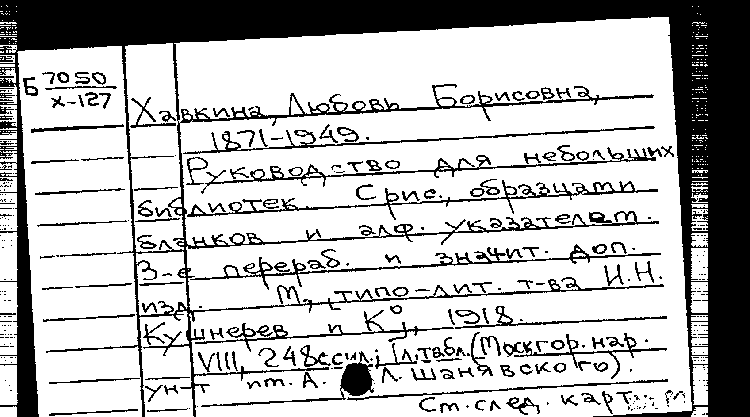 Б 7050
х-127
Хавкина, Любовь Борисовна,
1871-1949.
Руководство для небольших
библиотек. С рис., образцами
бланков и алф. указателем.
3-е перераб. и значит. доп.
изд. М., типо-лит. т-ва И.Н.
Кушнерев и К°, 1918.
VIII, 248с с ил.; 1 л. табл. (Моск. гор. нар.
ун-т им. А. Л. Шанявского).
См. след. карт.